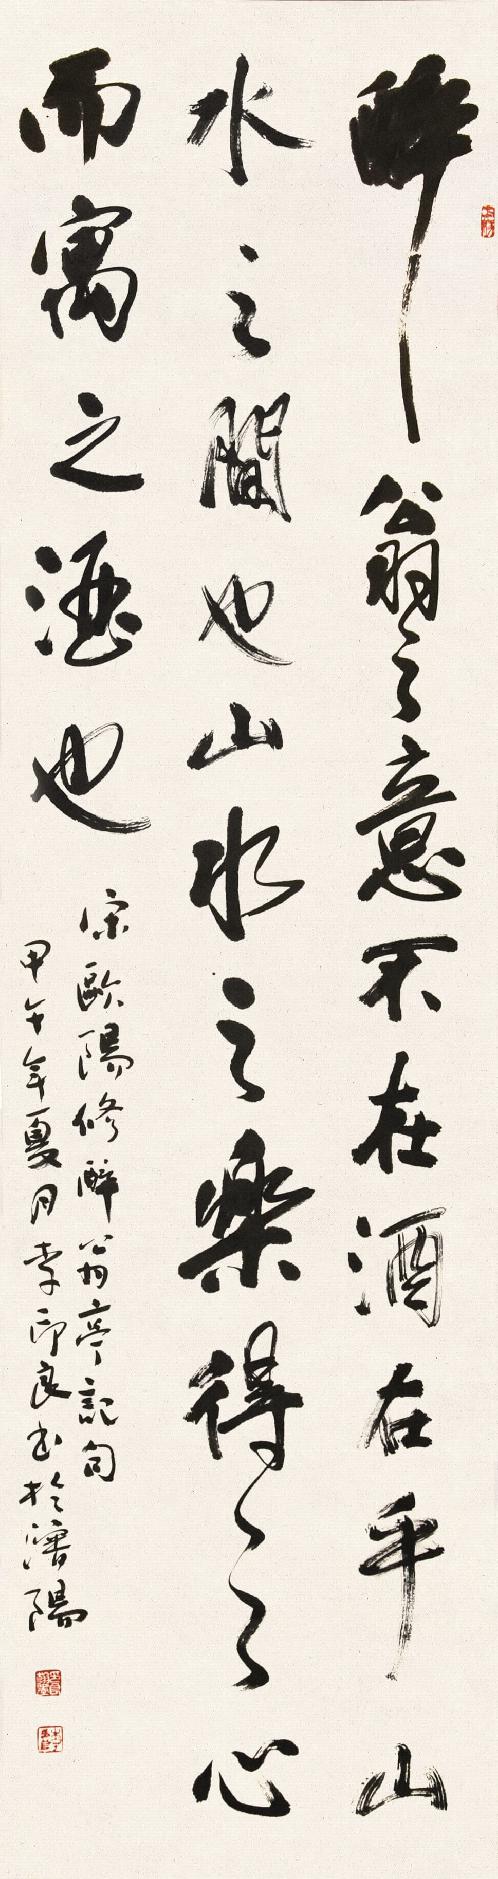 醉翁之意不在酒在乎山
水之間也山水之樂得之心
而寓之酒也
宋歐陽修醉翁亭記句
甲午年夏月李印良书於瀋陽